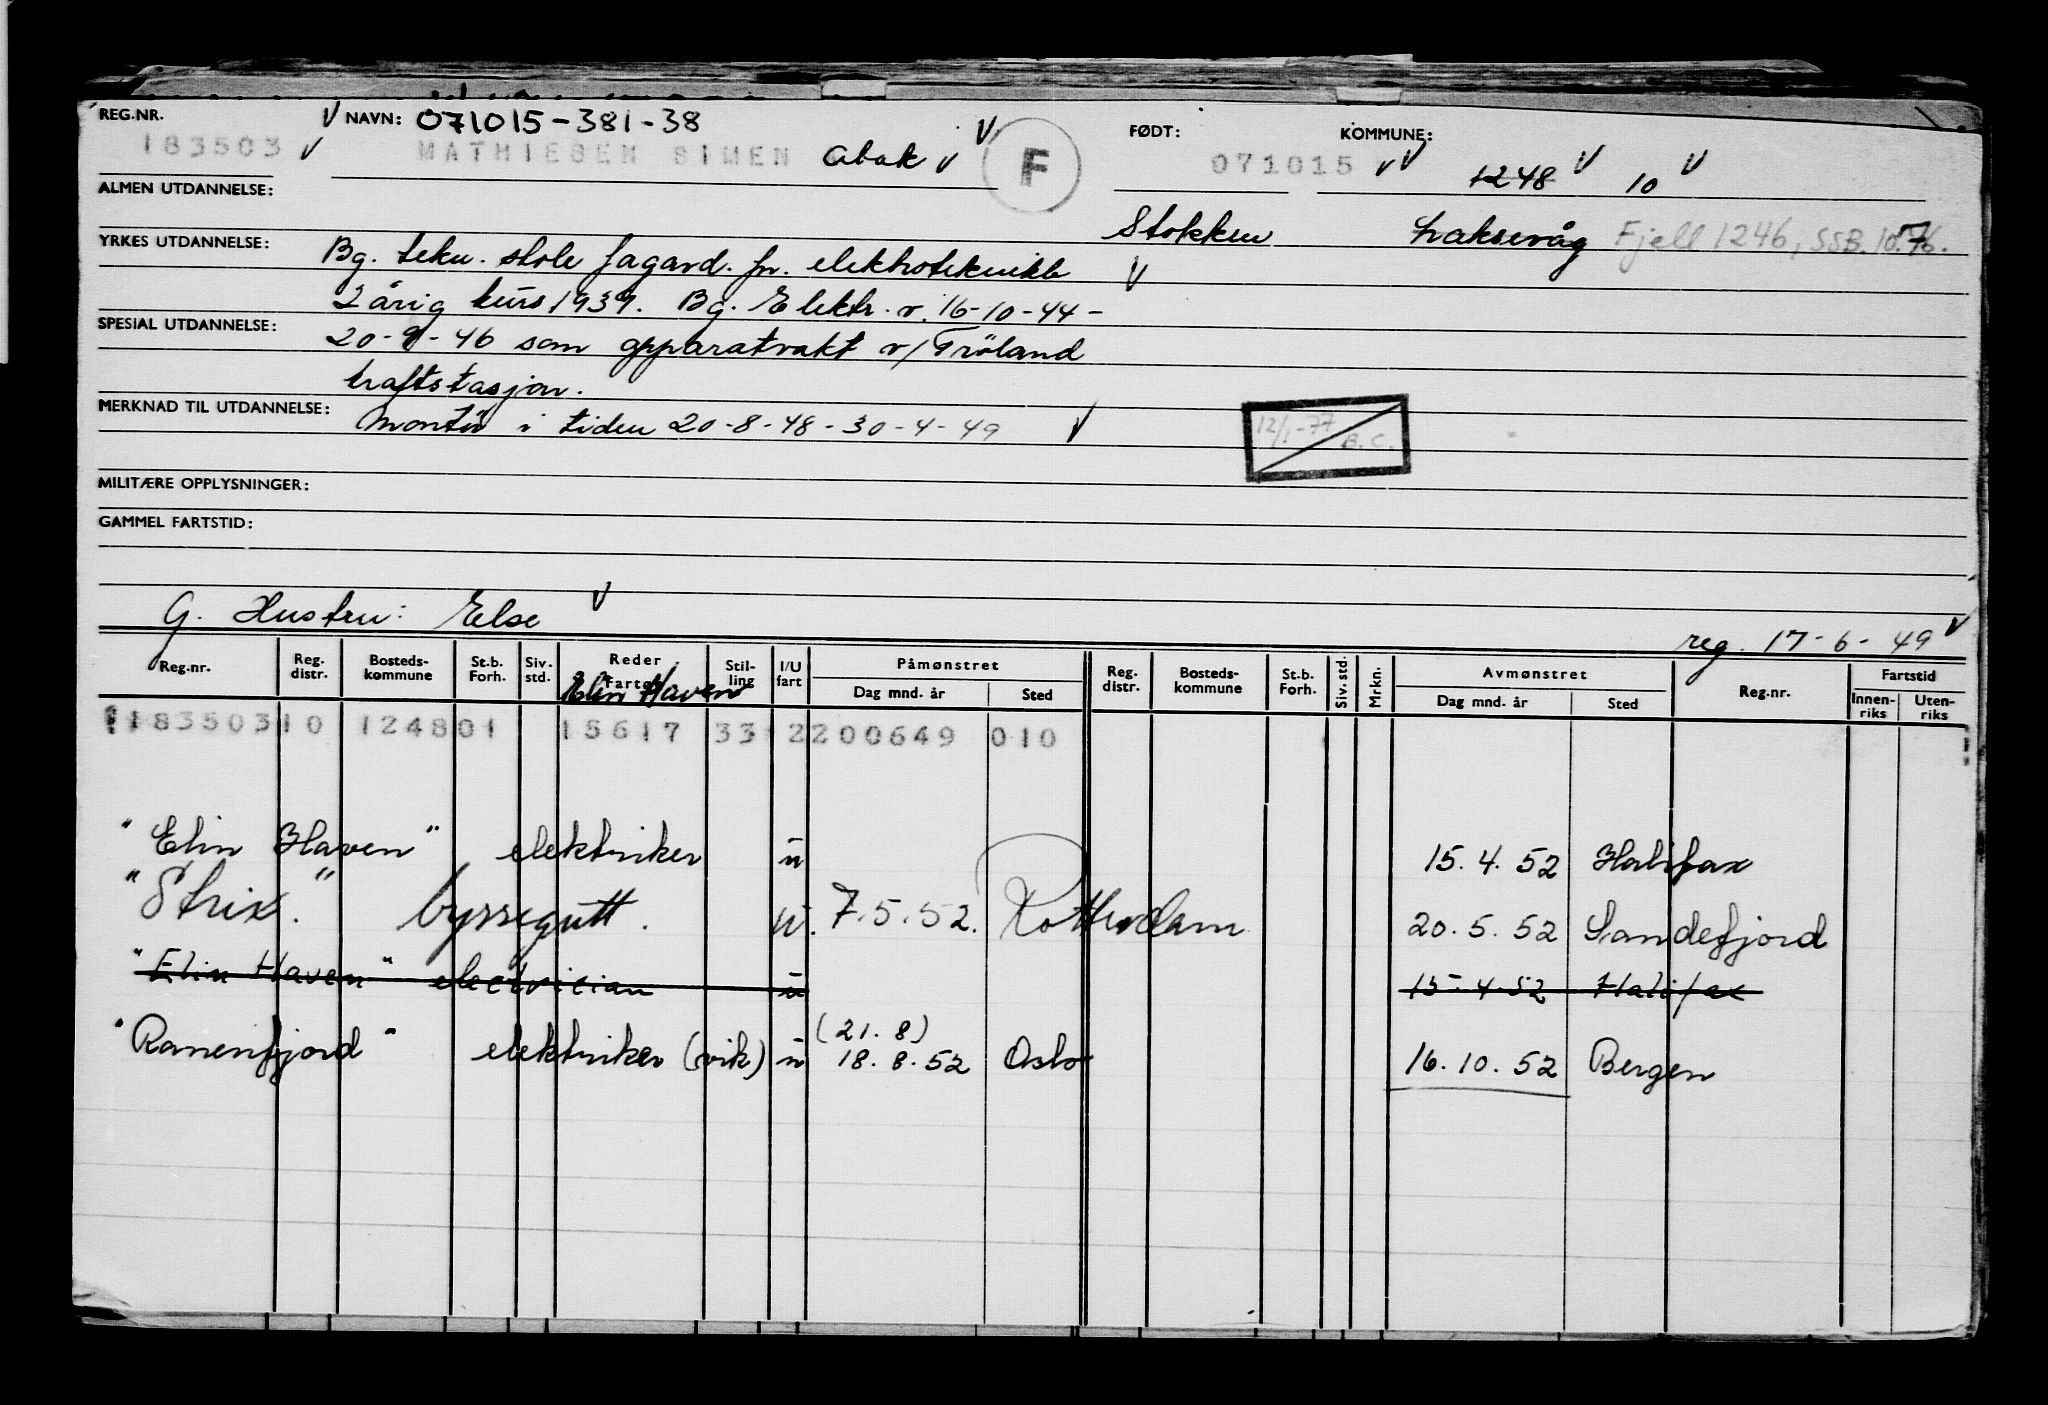 REG.NR. NAVN: 071015-381-38 FØDT: KOMMUNE:
183503 MATHIESEN SIMEN F 071015 1248 10
ALMEN UTDANNELSE:
Stokken Laksevåg Fjell 1246, SSB. 10.76.
YRKES UTDANNELSE: Bg. tekn. skole fagavd. for. elektroteknikk
2 årig kurs 1939. Bg. Elektr. v. 16-10-44 -
SPESIAL UTDANNELSE: 20-9-46 som apparatvakt v/ Fröland
kraftstasjon.
MERKNAD TIL UTDANNELSE: Montör i tiden 20-8-48 - 30-4-49
12/1-77 B.C.
MILITÆRE OPPLYSNINGER:
GAMMEL FARTSTID:
G. Hustru: Else
reg. 17-6-49
Reg.nr. Reg. distr. Bosteds-kommune St.b. Forh. Siv. std. Reder Fartøy Stil-ling I/U fart Påmønstret Dag mnd. år Sted Reg. distr. Bosteds-kommune St.b. Forh. Siv. std. Mrkn. Avmønstret Dag mnd. år Sted Reg.nr. Fartstid Innen-riks Uten-riks
Elin Haven
183503 10 1248 01 15617 33 2 200649 010
"Elin Haven" elektriker u 15.4.52 Halifax
"Strix." byssegutt. u. 7.5.52. Rotterdam 20.5.52 Sandefjord
"Elin Haven" electrician u 15-4-52 Halifax
(21.8)
"Ranenfjord" elektriker (vik) u 18.8.52 Oslo 16.10.52 Bergen